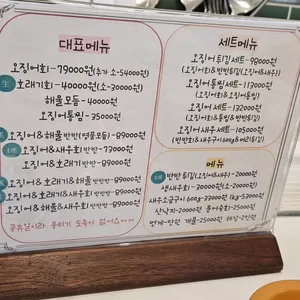 대표메뉴
오징어회-79000원(추가 소-54000원)
호래기회-40000원(소-30000원)
해물모듬-40000원
오징어통찜-35000원
오징어&해물반반-89000원
오징어&호래기반반-89000원
오징어&새우회반반-73000원
오징어&호래기&해물-89000원
오징어&호래기&새우회-89000원
오징어&해물&새우회-89000원
세트메뉴
오징어튀김세트-98000원
(오징어회&반반튀김(오징어&새우))
오징어통찜세트-113000원
(오징어회&오징어통찜)
오징어세트-132000원
오징어새우세트-105000원
메뉴
반반튀김(오징어&새우)-20000원
생새우회-30000원(소-20000원)
새우소금구이 600g-33000원 1kg-53000원
산낙지-20000원
멍게-만원 개불-25000원 해삼-2만원